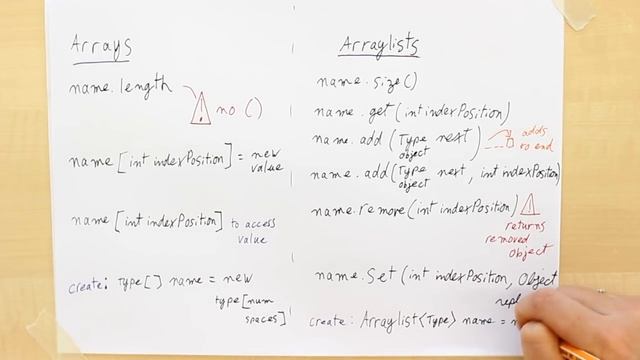 Arrays
name.length
no ()
name [int indexPosition] = new
value
name [int indexPosition] to access
value
create: Type[] name = new
type[num
spaces]
Arraylists
name.size()
name.get(int indexPosition)
name.add (Type next)
object
adds
to end
name.add(Type next, int indexPosition)
object
name.remove(int indexPosition)
returns
removed
object
name.set (int indexPosition, Object
repl
create: Arraylist<Type> name = n